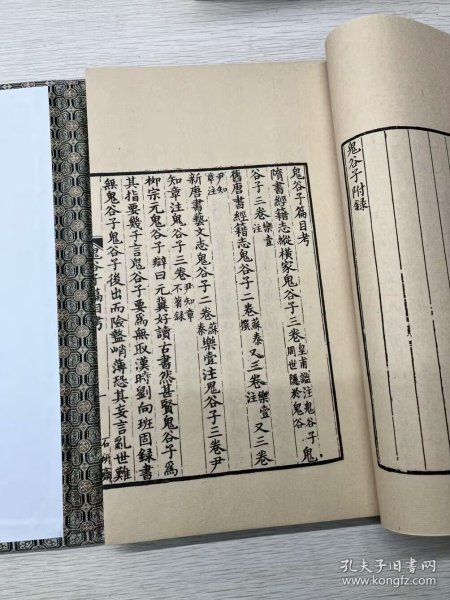 鬼谷子附録
鬼谷子篇目考
隋書經籍志縱橫家鬼谷子三卷皇甫謐注鬼谷子鬼
谷子三卷樂壹注周世隱於鬼谷
舊唐書經籍志鬼谷子二卷蘇秦撰又三卷樂壹注又三卷
尹知章注
新唐書藝文志鬼谷子二卷蘇秦樂壹注鬼谷子三卷尹
知章注鬼谷子三卷尹知章不著錄
柳宗元鬼谷子辯曰元冀好讀古書然甚賢鬼谷子爲
其指要幾千言鬼谷子要爲無取漢時劉向班固録書
無鬼谷子鬼谷子後出而險盭峭薄恐其妄言亂世難
篇目考
一
石研齋
孔夫子旧书网
www.kongfz.com